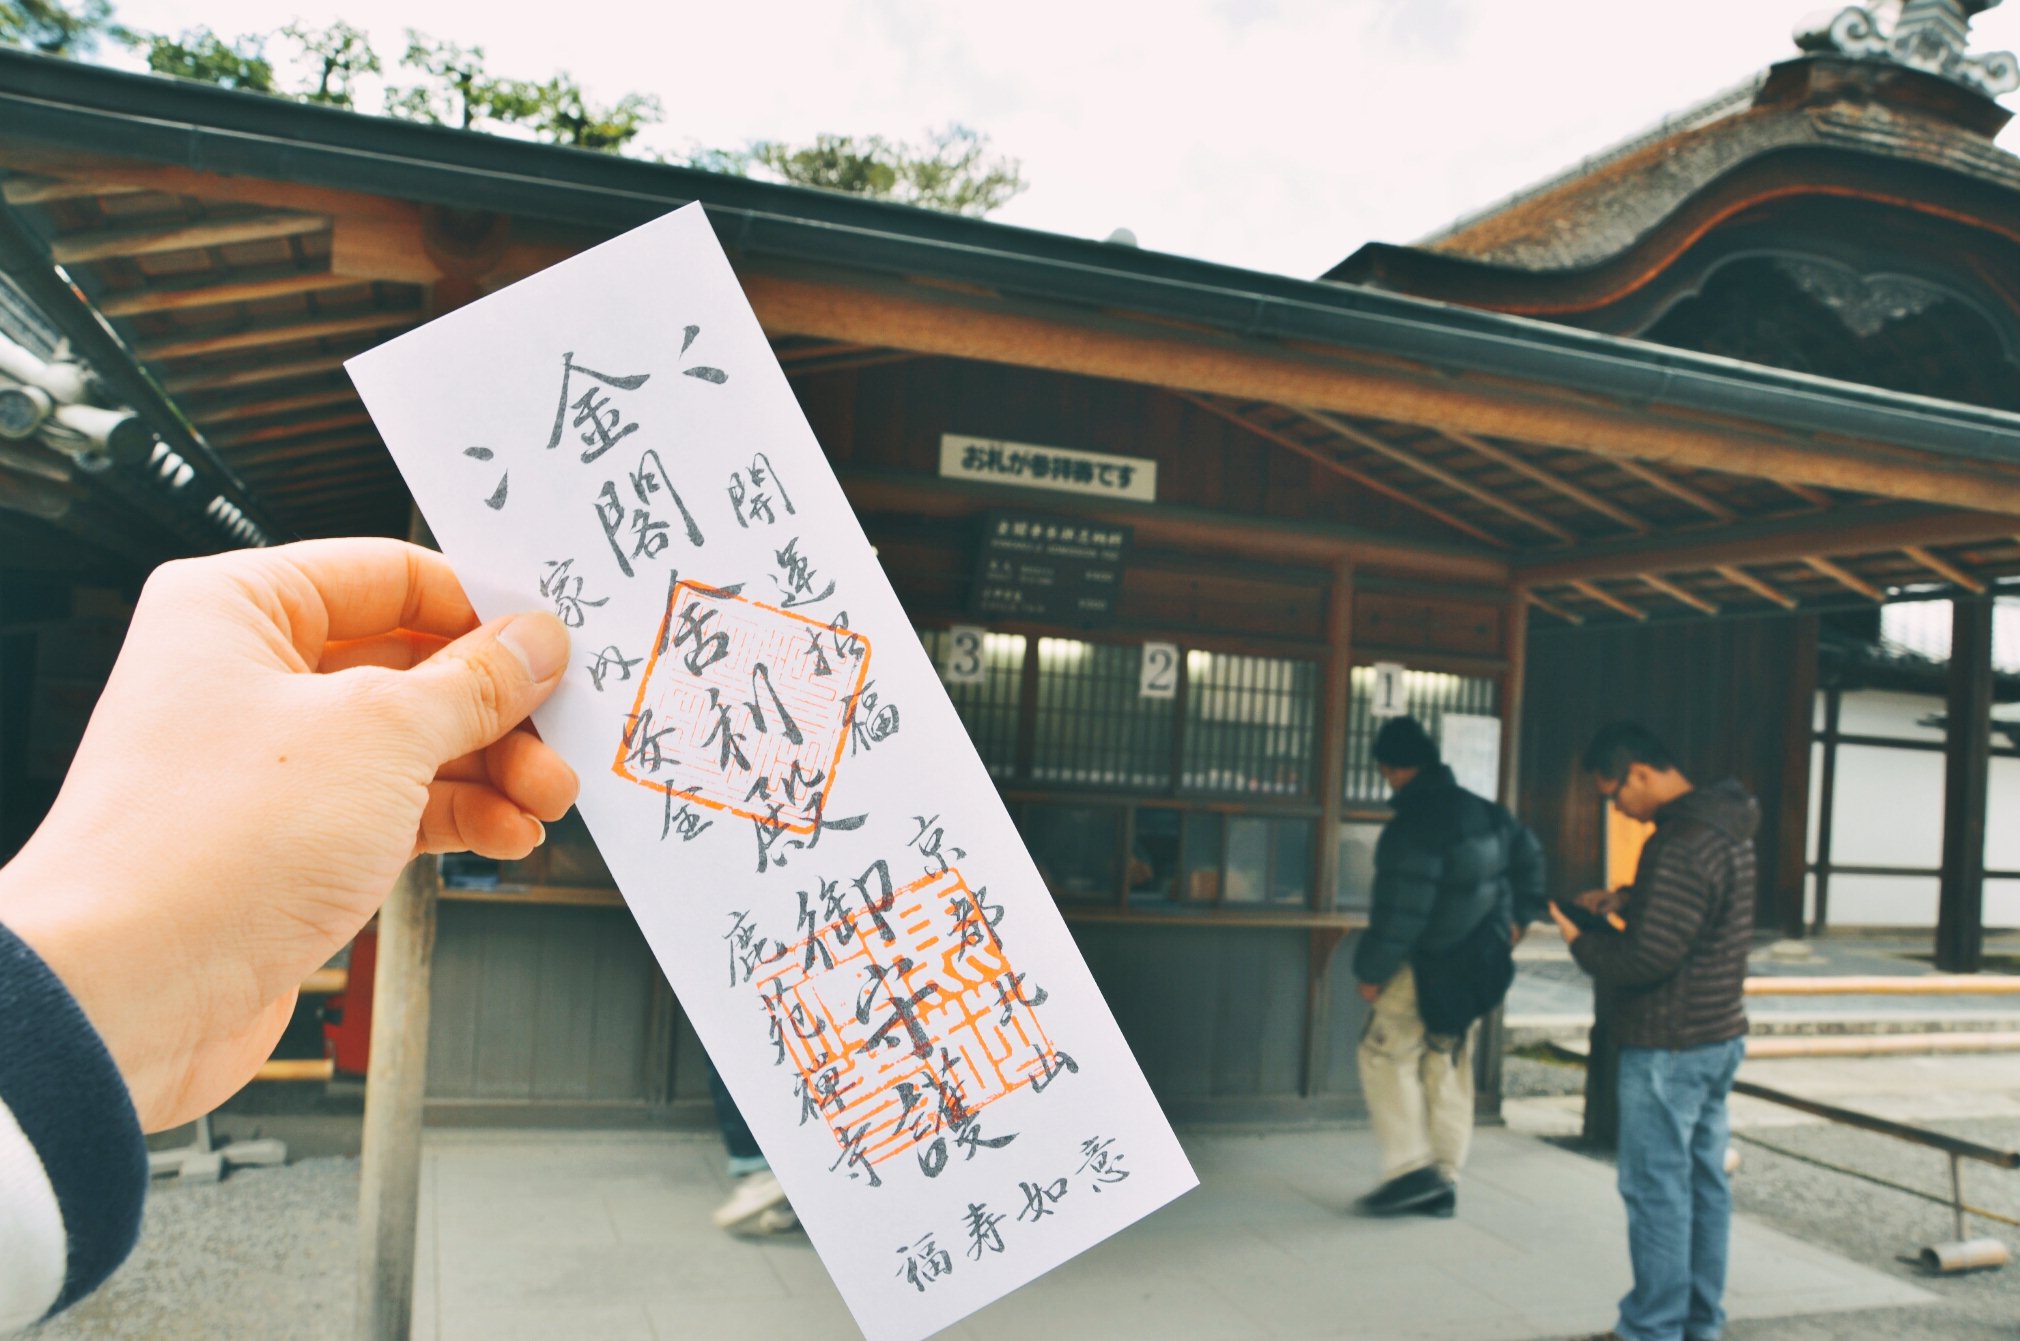 金閣舎利殿御守護
開運招福
家内安全
京都北山
鹿苑禅寺
福寿如意
お札が参拝券です
3
2
1